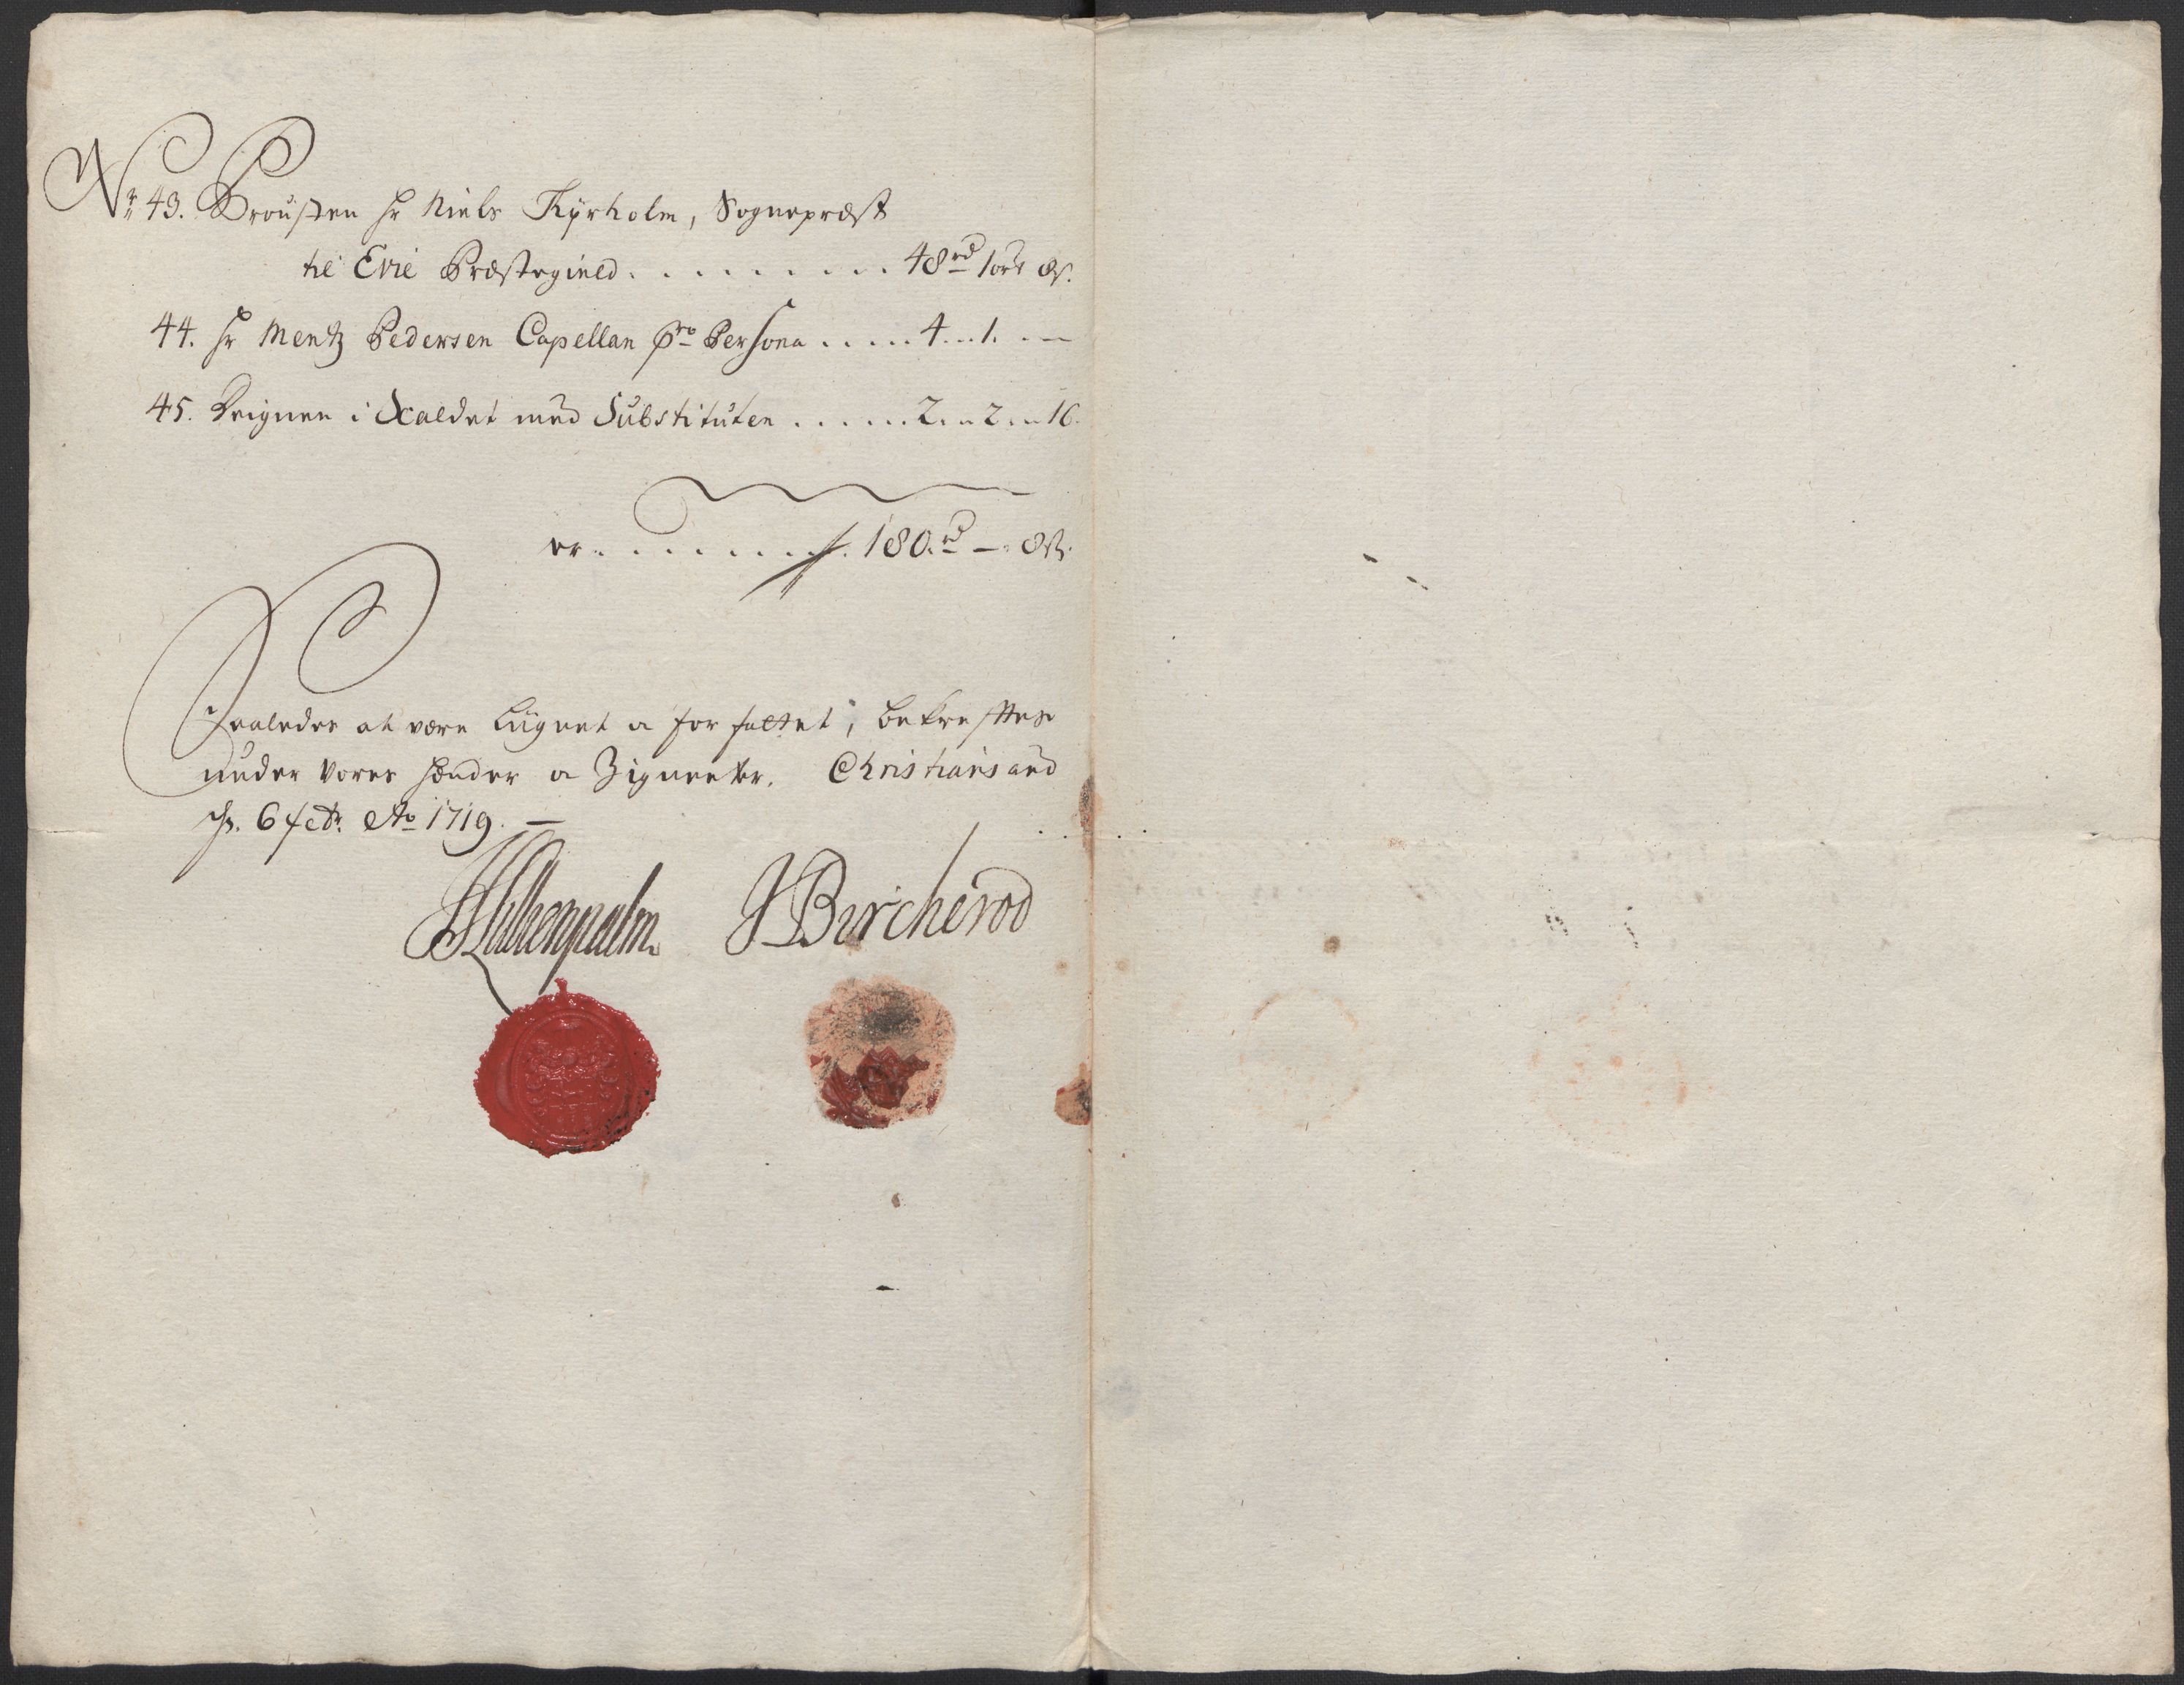 Nr. 43. Prousten Hr Niels Kyrholm, Sognepræst
til Evie Præstegield. . . . . . . . . 48 rd 1 ort 8 s.
44. Hr Mentz Pedersen Capellan pro Persona . . . . 4 . . 1. —
45. Deignen i Kaldet med Substituten . . . . . 2 . . 2 . . 16.
er . . . . . . . 180. rd — 8 s.
Saaledes at være Lignet og forfattet, bekreftes
under vores Hænder og Zigneter. Christiansand
d. 6 Ao 1719. —
JBircherod